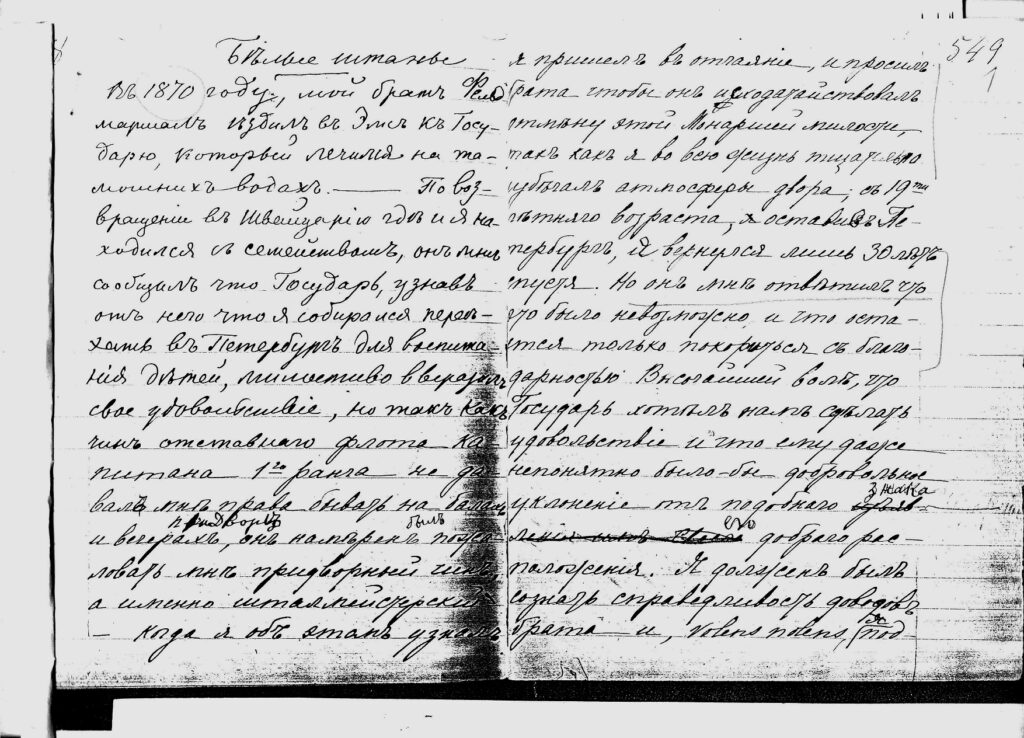 Бѣлые штаны
Въ 1870 году, мой братъ Фельд
маршалъ ѣздилъ въ Эмсъ къ Госу-
дарю, который лечился на та-
мошнихъ водахъ. — По воз-
вращеніи въ Швейцарію гдѣ и я на-
ходился съ семействомъ, онъ мнѣ
сообщилъ что Государь, узнавъ
отъ него что я собирался переѣ-
хать въ Петербургъ для воспита-
нія дѣтей, милостиво выразилъ
свое удовольствіе, но такъ какъ
чинъ отставнаго флота ка-
питана 1го ранга не да-
валъ мнѣ права бывать на балахъ
при Дворѣ былъ
и вечерахъ, онъ намѣренъ пожа-
ловать мнѣ придворный чинъ,
а именно шталмейстерскій
— Когда я объ этомъ узналъ
549
1
я пришелъ въ отчаяніе, и просилъ
брата чтобы онъ исходатайствовалъ
отмѣну этой Монаршей милости,
такъ какъ я во всю жизнь тщательно
избѣгалъ атмосферы двора; съ 19ти
лѣтняго возраста, я оставивъ Пе-
тербургъ, я вернулся лишь 30 лѣтъ
спустя. Но онъ мнѣ отвѣтилъ что
это было невозможно и что оста-
ется только покориться съ благо-
дарностью Высочайшей волѣ, что
Государь хотѣлъ намъ сдѣлать
удовольствіе и что ему даже
непонятно было-бы добровольное
уклоненіе отъ подобнаго знака
его добраго рас-
положенія. Я долженъ былъ
сознать справедливость доводовъ
брата и, volens nolens, я под-